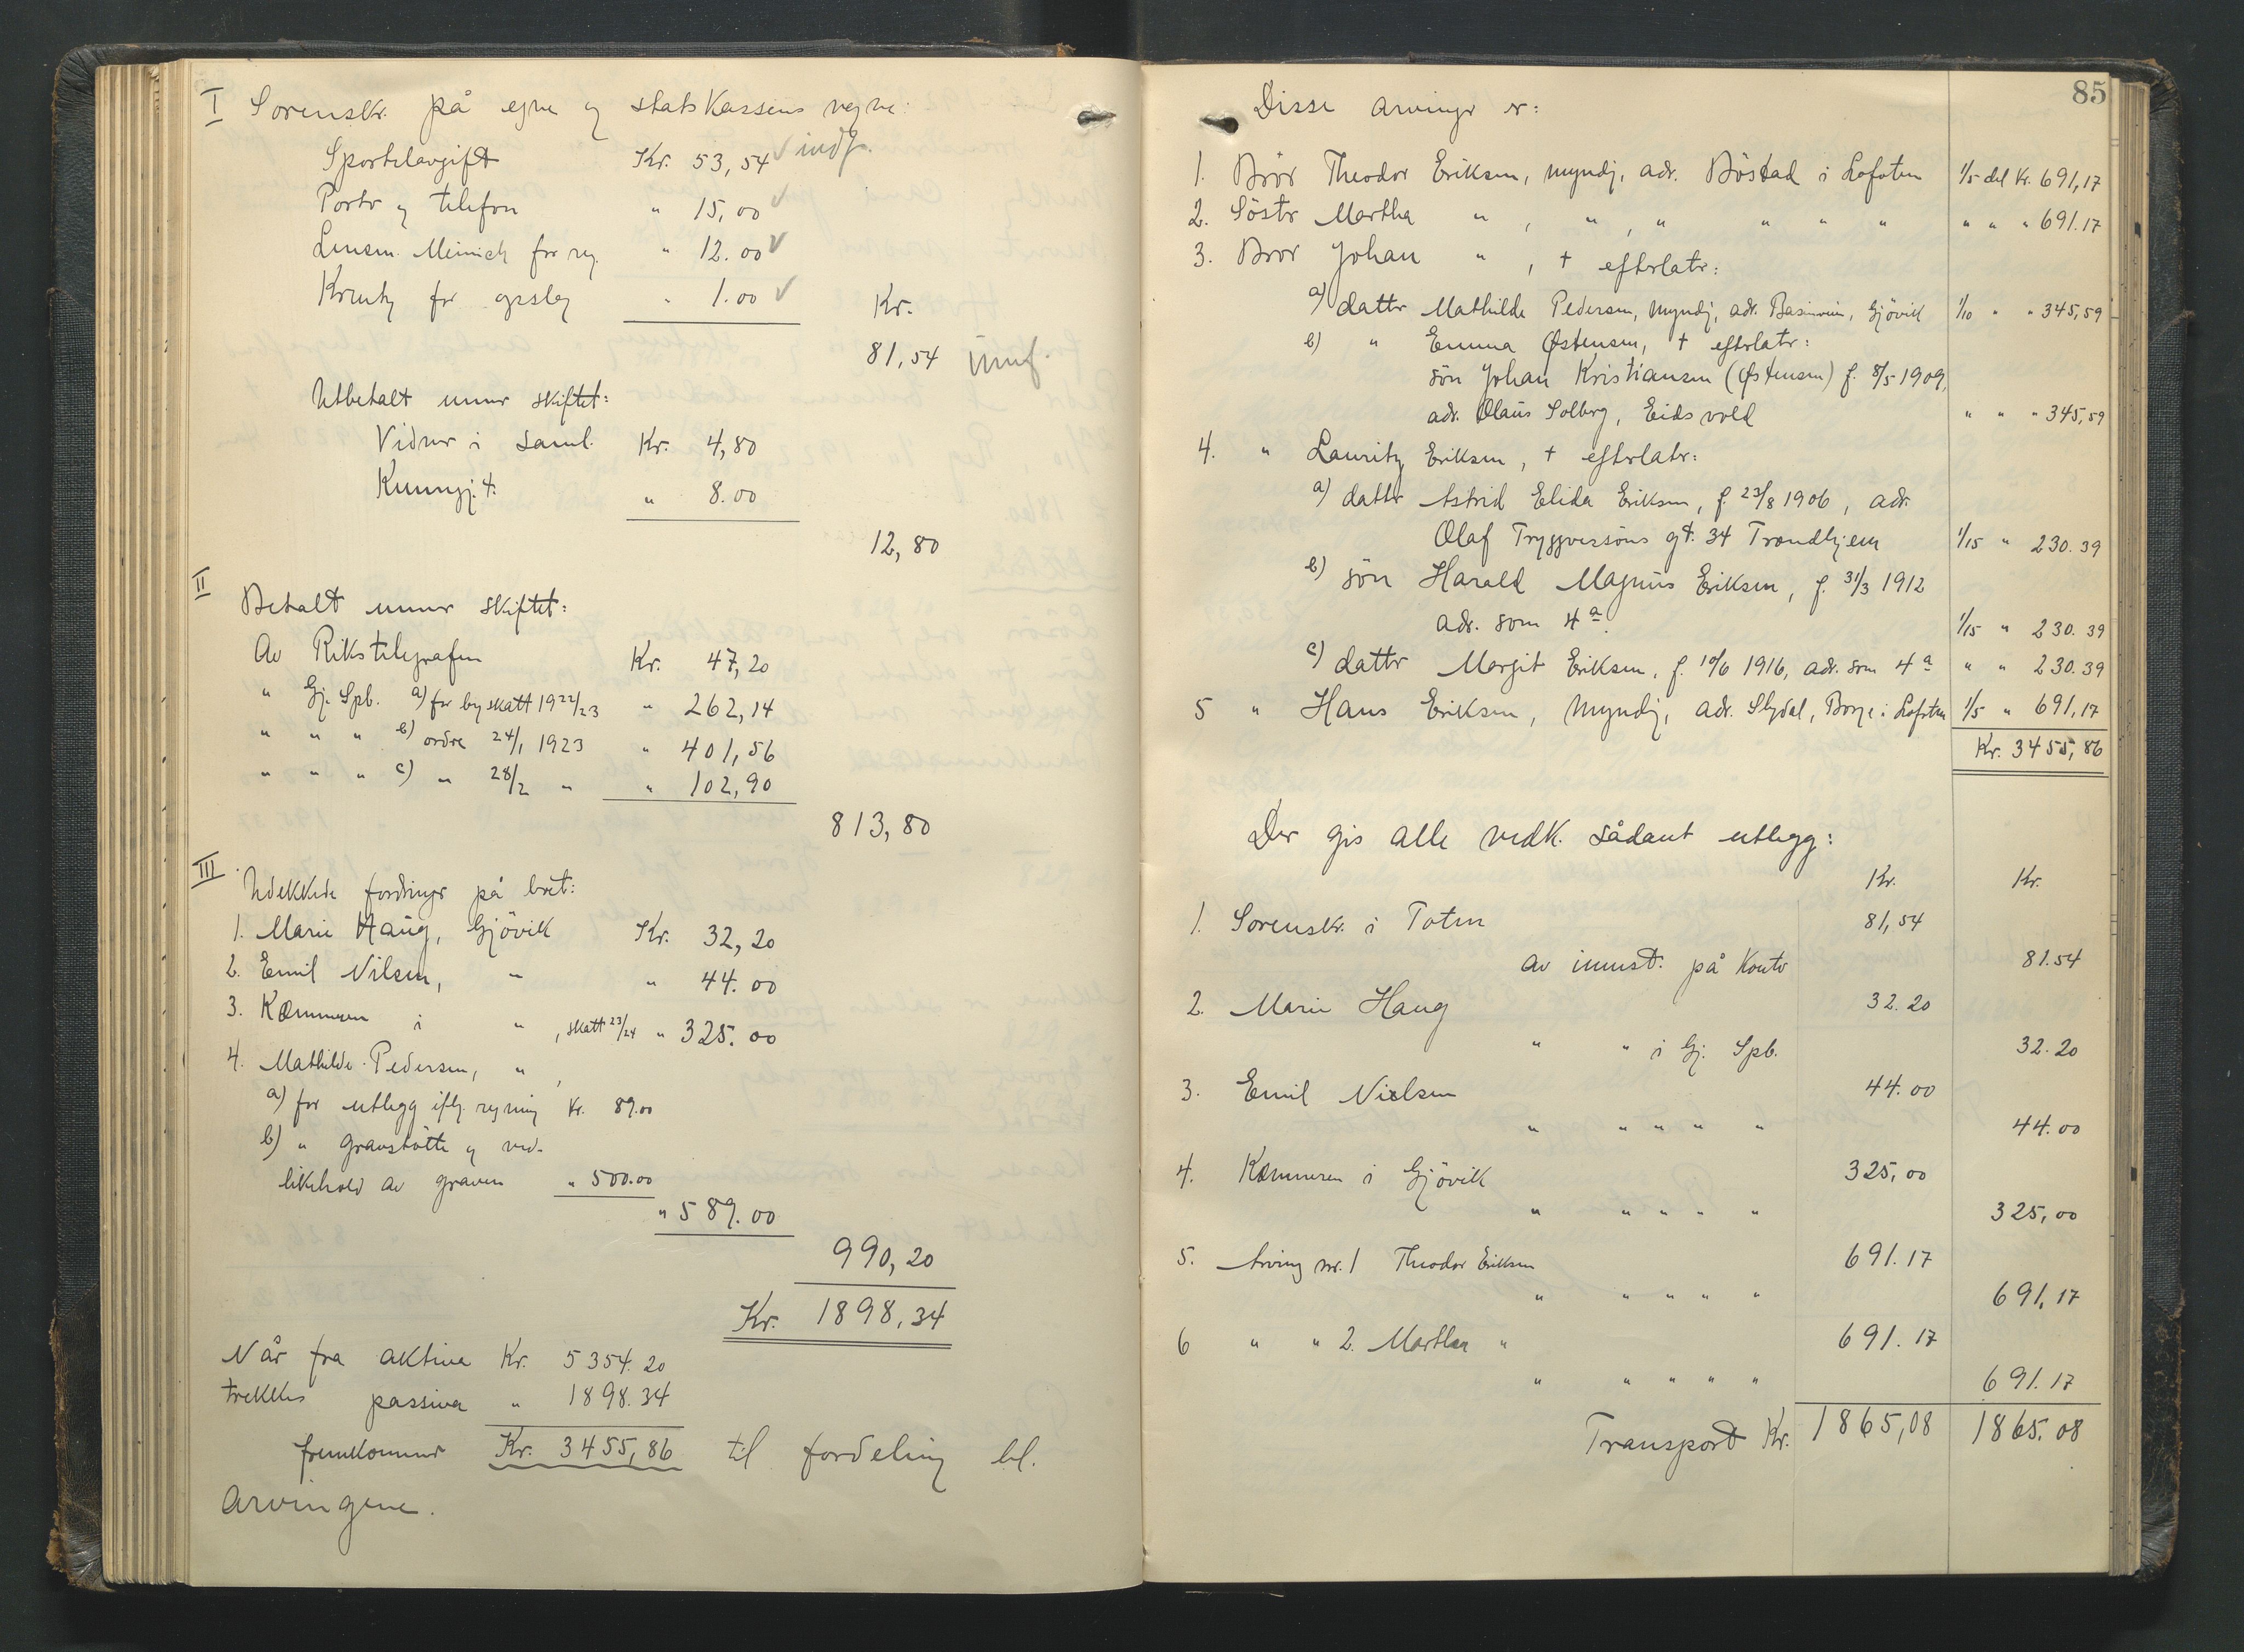 I Sorenskr. på egne og statskassens vegne:
Sportelavgift Kr. 53,54 ✓ indf.
Porto og telefon " 15,00 ✓
Lensm. Meinich for reg. " 12.00 ✓
for opslag " 1.00 ✓ Kr.
81,54
Utbetalt under skiftet:
Vidner i saml. Kr. 4,80
Kunngj. " 8.00
12,80
II
Betalt under skiftet:
Av Rikstelegrafen Kr. 47,20
" Gj. Spb. a) for byskatt 1922/23 " 262,14
" " " b) ordre 24/1 1923 " 401,56
" " " c) " 28/2 " " 102,90
813,80
III
Udekkede fordringer på boet:
1. Marie Haug, Gjövik Kr. 32,20
2. Emil Nilsen, " " 44.00
3. Kæmneren i " , skatt 23/24 " 325.00
4. Mathilde Pedersen, " ,
a) for utlegg iflg. regning Kr. 89.00
b) " gravstötte og ved-
likehold av graven " 500.00
" 589.00
990,20
Kr. 1898,34
Når fra aktiva Kr. 5354.20
trekkes passiva " 1898.34
fremkommer Kr. 3455,86 til fordeling bl.
arvingene.
85
Disse arvinger er:
1. Bror Theodor Eriksen, myndig, adr. Böstad i Lofoten 1/5 del Kr. 691,17
2. Söster Martha " , " , " " " " " " " 691.17
3. Bror Johan " , † efterlater:
a) datter Mathilde Pedersen, myndig, adr. Gjövik 1/10 " " 345,59
b) " Emma Østensen, † efterlater:
sön Johan Kristiansen (Østensen) f. 8/5 1909,
adr. Olaus Solberg, Eidsvold " " " 345,59
4. " Lauritz Eriksen, † efterlater:
a) datter Astrid Elida Eriksen, f. 23/8 1906, adr.
Olaf Tryggvessöns gt. 34 Trondhjem 1/15 " 230.39
b) sön Harald Magnus Eriksen, f. 31/3 1912
adr. som 4a. 1/15 " 230.39
c) datter Margit Eriksen, f. 10/6 1916, adr. som 4a " " 230.39
5 " Hans Eriksen, myndig, adr. Slydal, Borge i Lofoten 1/5 " 691,17
Kr. 3455,86
Der gis alle vedk. sådant utlegg:
Kr. Kr.
1. Sorenskr. i Toten 81,54
av innest. på konto 81.54
2. Marie Haug 32.20
" " i Gj. Spb. 32.20
3. Emil Nielsen 44.00
" " " " " 44.00
4. Kæmneren i Gjövik 325,00
" " " " " 325,00
5. Arving nr. 1 Theodor Eriksen 691.17
" " " " " 691,17
6 " " 2. Martha " 691.17
" " " " " 691.17
Transport Kr. 1865,08 1865.08